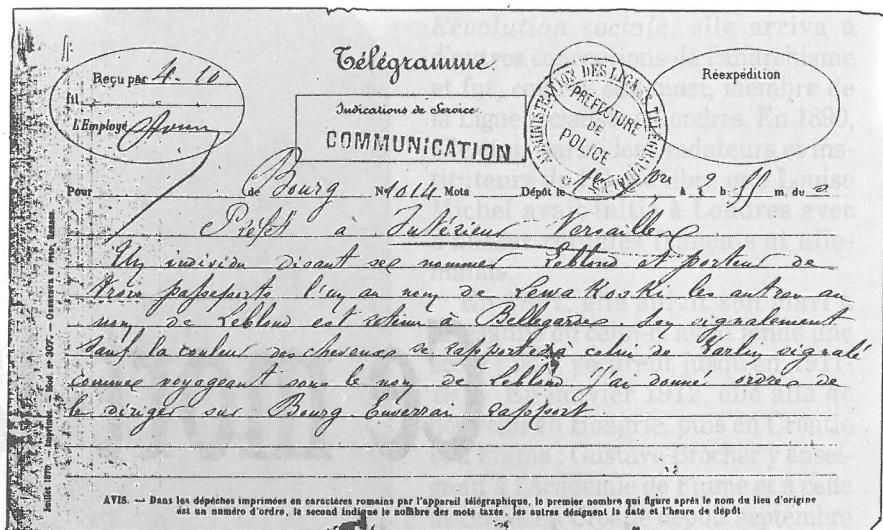 Télégramme.
Reçu par 4-10
fil
L'Employé
Indications de Service.
COMMUNICATION
ADMINISTRATION DES LIGNES TÉLÉGRAPHIQUES
PRÉFECTURE
DE
POLICE
Réexpédition
Pour de Bourg No 1014 Mots Dépôt le à 2 h 55 m. du s
Préfet à Intérieur Versailles
Un individu disant se nommer Leblond et porteur de
trois passeports l'un au nom de Lewakoski les autres au
nom de Leblond est retenu à Bellegarde Son signalement
sauf la couleur des cheveux se rapporte à celui de Varlin signalé
comme voyageant sous le nom de Leblond J'ai donné ordre de
le diriger sur Bourg Enverrai rapport
AVIS. — Dans les dépêches imprimées en caractères romains par l'appareil télégraphique, le premier nombre qui figure après le nom du lieu d'origine
est un numéro d'ordre, le second indique le nombre des mots taxés, les autres désignent la date et l'heure de dépôt
Juillet 1870. — Imprimés. — Mod. n° 307. —